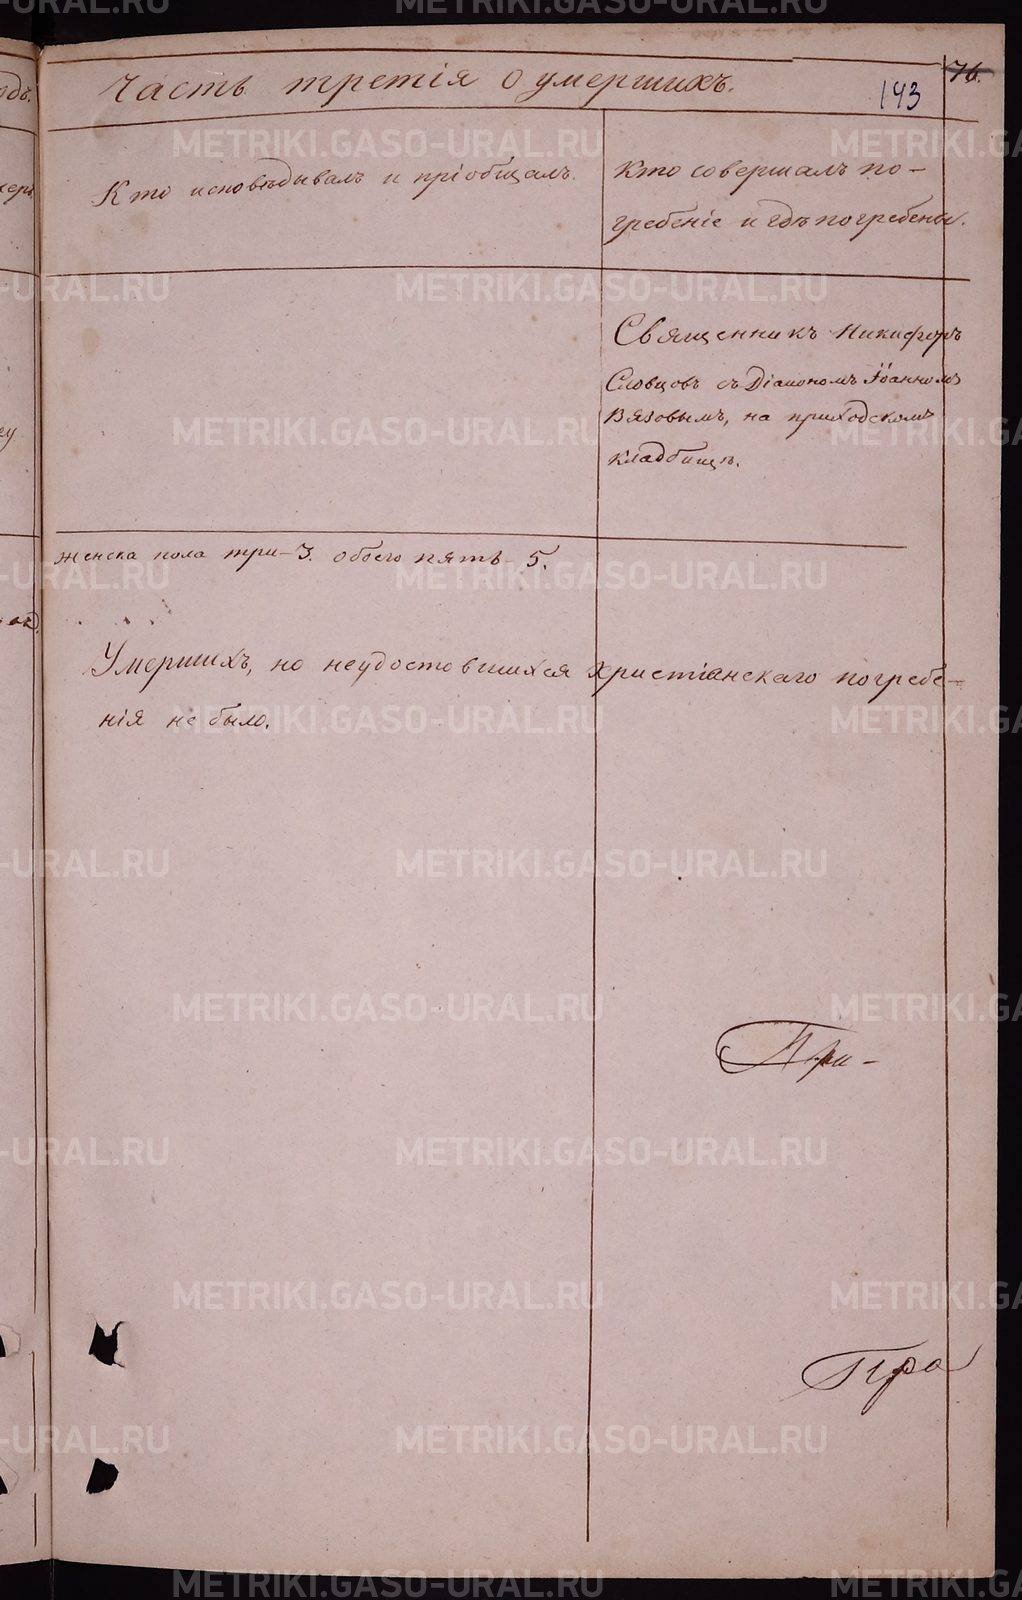 Часть третія о умершихъ.
193
76.
Кто исповѣдывалъ и пріобщалъ.
Кто совершалъ по-
гребеніе и гдѣ погребены.
Священникъ Никифоръ
Словцовъ съ Діакономъ Іоанномъ
Вязовымъ, на приходскомъ
кладбищѣ.
женска пола три-3. обоего пять-5.
Умершихъ, но неудостоившихся христіанскаго погребе-
нія не было.
При-
METRIKI.GASO-URAL.RU